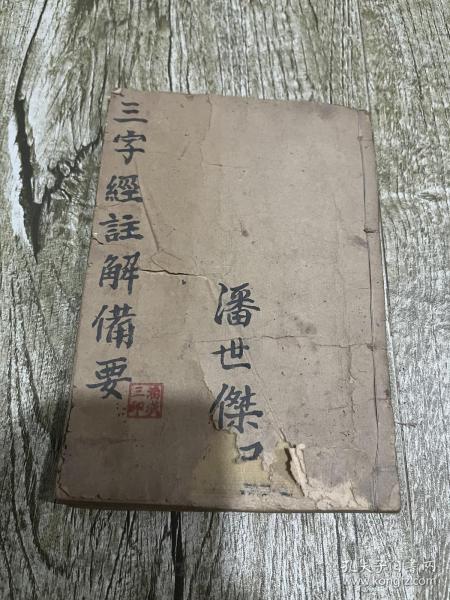 三字經註解備要
潘世傑
孔夫子旧书网
www.kongfz.com